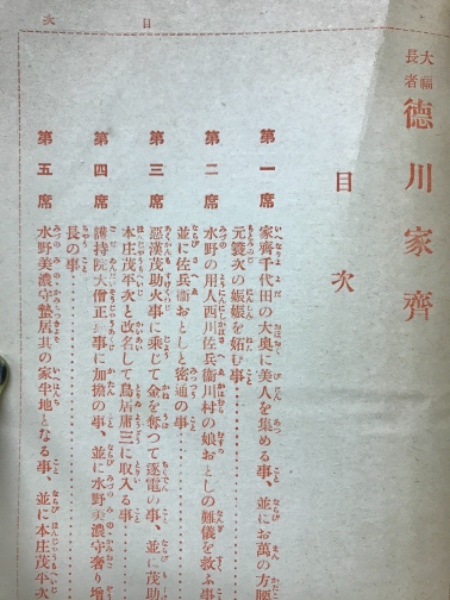 目次
大福長者
德川家齊
目次
第一席 家齊千代田の大奥に美人を集める事、並にお萬の方腰
元簑次の姙娠を妬む事
第二席 水野の用人西川佐兵衞川村の娘おとしの難儀を救ふ事
並に佐兵衞おとしと密通の事
第三席 惡漢茂助火事に乗じて金を奪つて逐電の事、並に茂助
本庄茂平次と改名して鳥居甫三に取入る事
第四席 護持院大僧正事に加擔の事、並に水野美濃守奢り增
長の事
第五席 水野美濃守蟄居其の家半地となる事、並に本庄茂平次